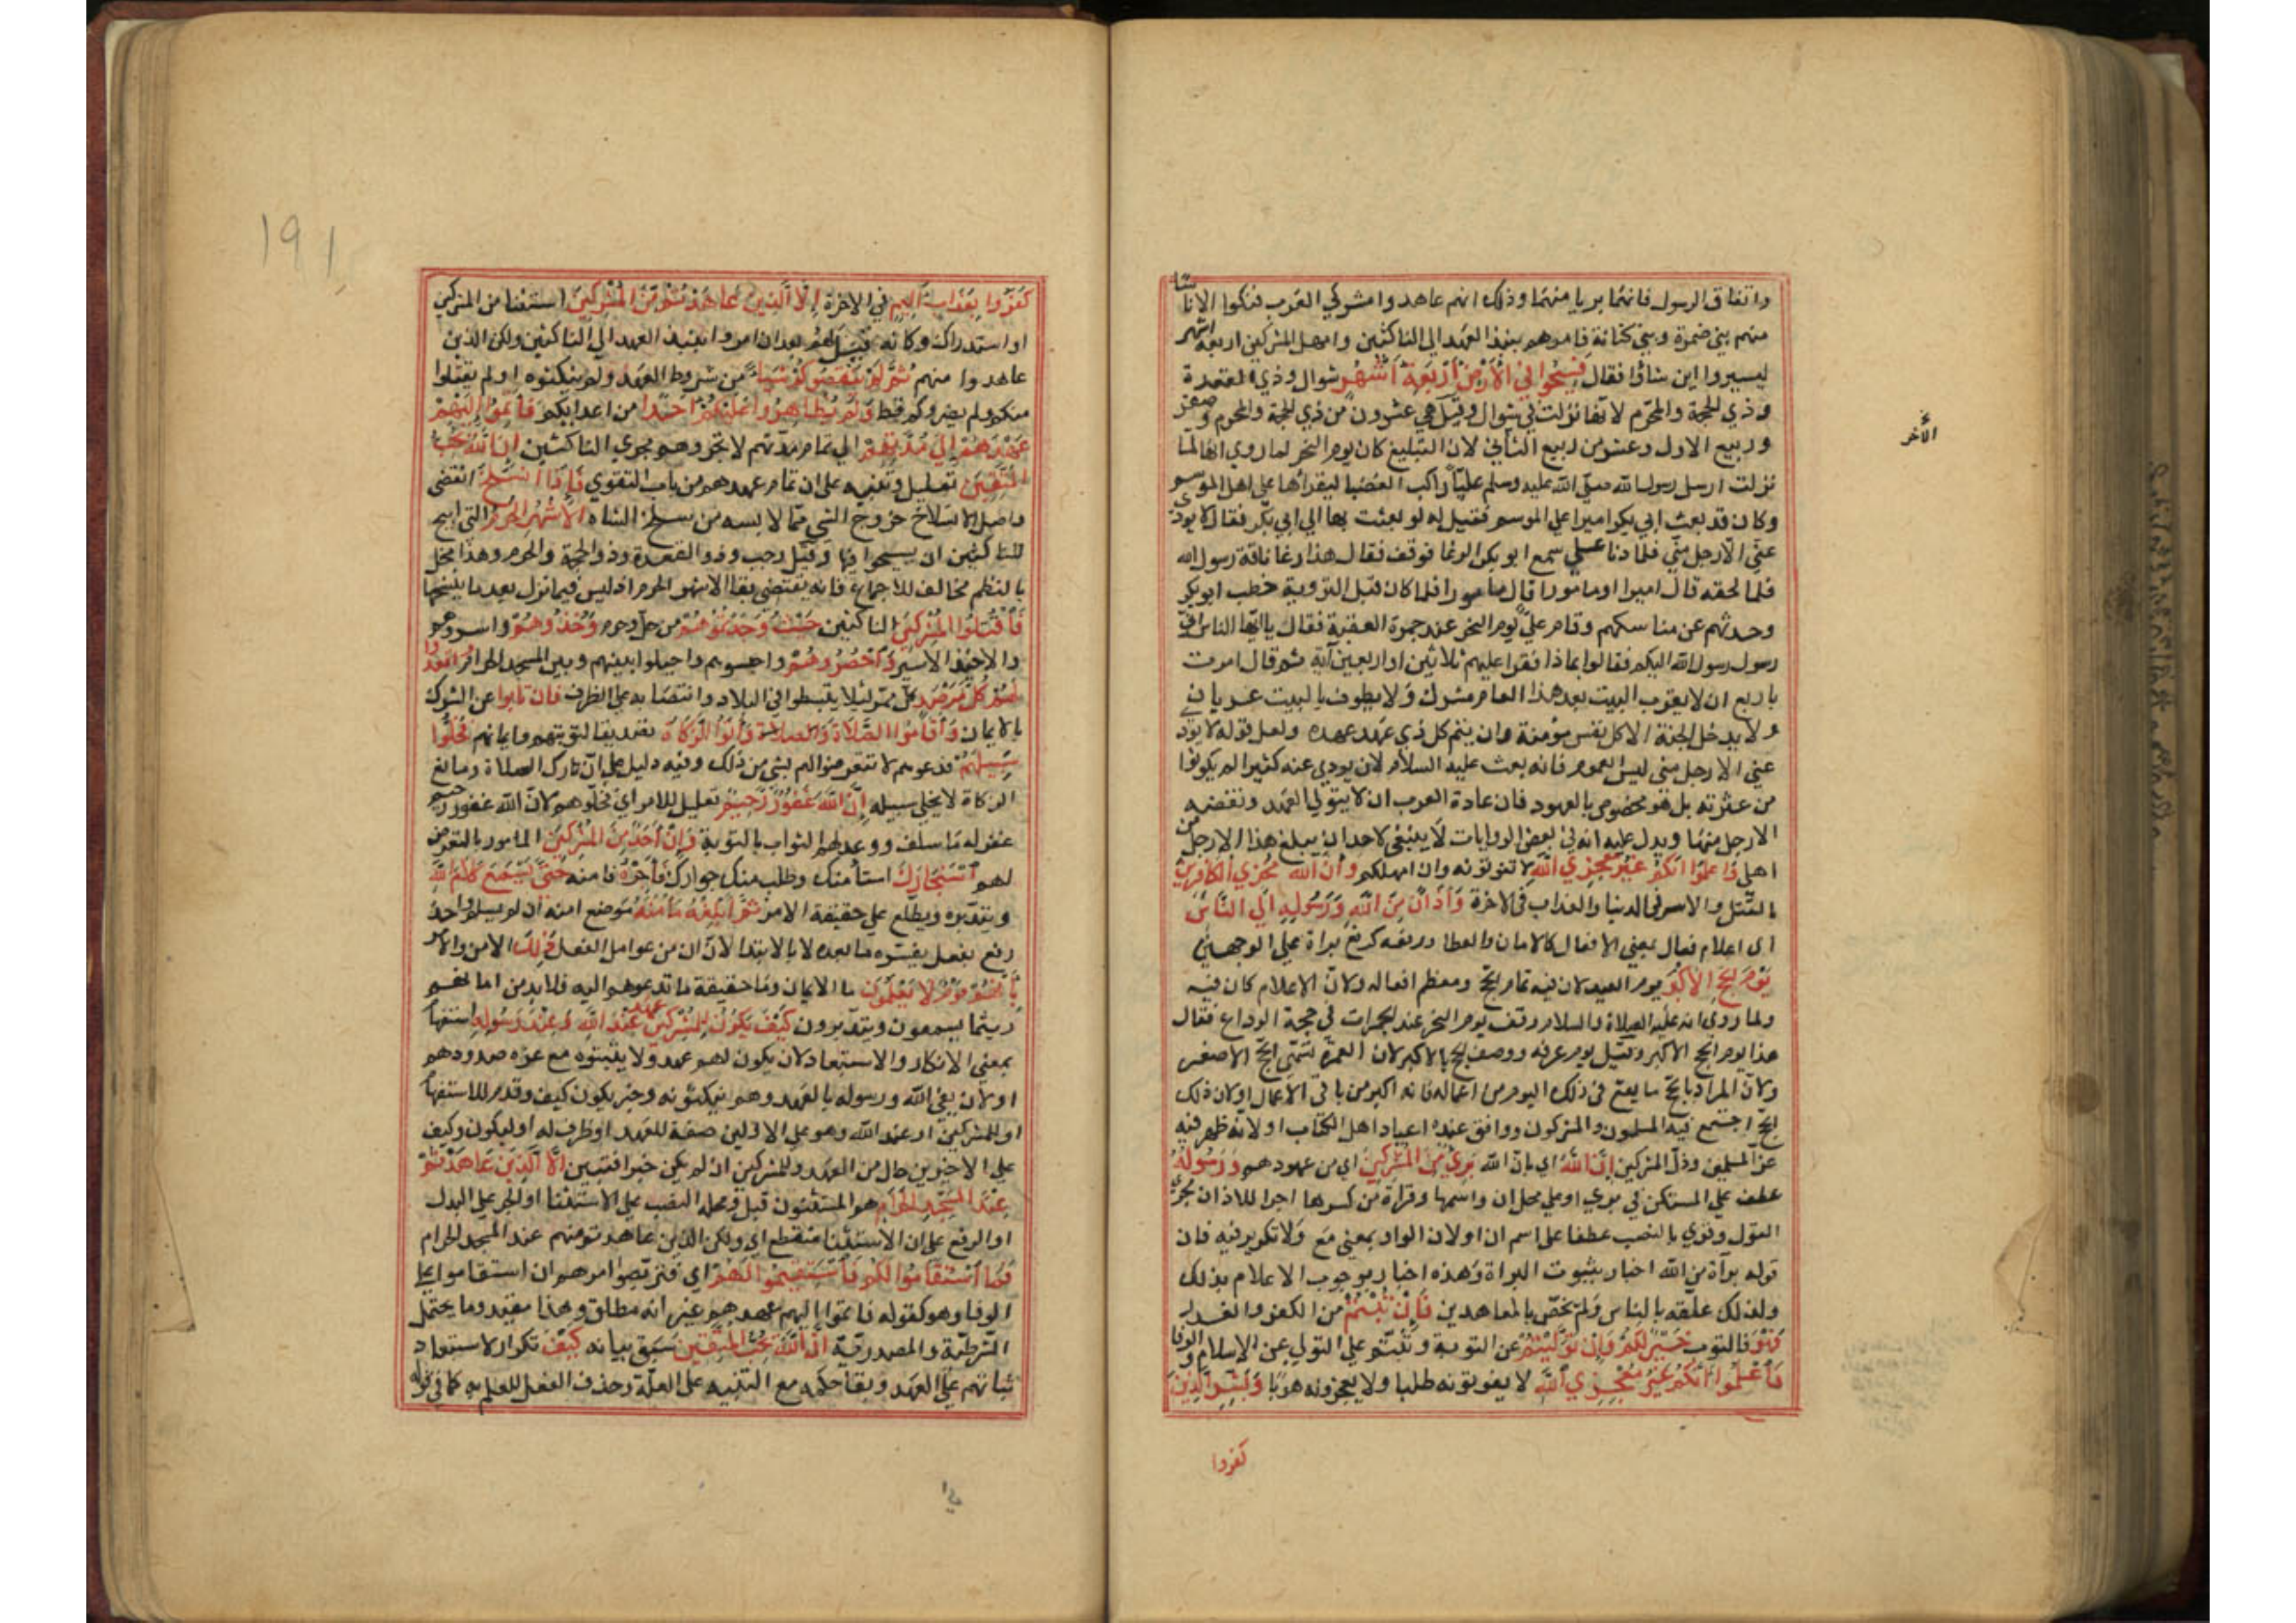 واتفاق الرسول فانهما بريا منهما وذلك انهم عاهدوا مشركي العرب فنكثوا الا اناسا
منهم بني ضمرة وبني كنانة فامرهم بنبذ العهد الى الناكثين وامهل المشركين اربعة اشهر
ليسيروا اين شاؤا فقال فسيحوا في الارض اربعة اشهر شوال وذي القعدة
وذي الحجة والمحرم لانها نزلت في شوال وقيل هي عشرون من ذي الحجة والمحرم وصفر
وربيع الاول وعشر من ربيع الثاني لان التبليغ كان يوم النحر لما روي انها لما
الآخر
نزلت ارسل رسول الله صلى الله عليه وسلم عليا راكب العضبا ليقرأها على اهل الموسم
وكان قد بعث ابي بكر اميرا على الموسم فقيل له لو بعثت بها الي ابي بكر فقال لا يودي
عني الا رجل مني فلما دنا علي سمع ابو بكر الرغا فوقف فقال هذا رغا ناقة رسول الله
فلما لحقه قال امير او مامور قال مامور فلما كان قبل التروية خطب ابو بكر
وحدثهم عن مناسكهم وقام علي يوم النحر عند جمرة العقبة فقال يا ايها الناس اني
رسول رسول الله اليكم فقالوا بماذا فقرا عليهم ثلاثين او اربعين آية ثم قال امرت
باربع ان لا يقرب البيت بعد هذا العام مشرك ولا يطوف بالبيت عريان
ولا يدخل الجنة الا كل نفس مؤمنة وان يتم كل ذي عهد عهده ولعل قوله لا يودي
عني الا رجل مني ليس للعموم فانه بعث عليه السلام لان يودي عنه كثيرا لم يكونوا
من عترته بل هو مخصوص بالعهود فان عادة العرب ان لا يتولي العهد ونقضه
الا رجل منها ويدل عليه انه في بعض الروايات لا ينبغي لاحد ان يبلغ هذا الا رجل من
اهلي واعلموا انكم غير معجزي الله لا تفوتونه وان امهلكم وان الله مخزي الكافرين
بالقتل والاسر في الدنيا والعذاب في الاخرة واذان من الله ورسوله الى الناس
اى اعلام فعال بمعني الافعال كالامان والعطا ورفعه كرفع براة على الوجهين
يوم الحج الاكبر يوم العيد لان فيه تمام الحج ومعظم افعاله ولان الاعلام كان فيه
ولما روي انه عليه الصلاة والسلام وقف يوم النحر عند الجمرات في حجة الوداع فقال
هذا يوم الحج الاكبر وقيل يوم عرفة ووصف الحج بالاكبر لان العمرة تسمى الحج الاصغر
ولان المراد بالحج ما يقع في ذلك اليوم من اعماله فانه اكبر من باقي الاعمال او لان ذلك
الحج اجتمع فيه المسلمون والمشركون ووافق عنده اعياد اهل الكتاب او لانه ظهر فيه
عز المسلمين وذل المشركين ان الله اي بان الله بري من المشركين اي من عهودهم ورسوله
عطف على المستكن في بري او على محل ان واسمها وقراة من كسرها اجرا للاذان مجرى
القول وقري بالنصب عطفا على اسم ان او لان الواو بمعني مع ولا تكرير فيه فان
قوله براة من الله اخبار بثبوت البراة وهذه اخبار بوجوب الاعلام بذلك
ولذلك علقه بالناس ولم يخص بالمعاهدين فان تبتم من الكفر والغدر
فهو فالتوب خير لكم وان توليتم عن التوبة وثبتم علي التولي عن الاسلام والوفا
فاعلموا انكم غير معجزي الله لا يفوتونه طلبا ولا يعجزونه هربا وبشر الذين
كفروا
١٩١
كفروا بعذاب اليم في الاخرة الا الذين عاهدتم من المشركين استثنا من المشركين
او استدراك وكانه قيل لهم بعد ان امروا بنبذ العهد الي الناكثين ولكن الذين
عاهدوا منهم ثم لم ينقصوكم شيئا من شروط العهد ولم ينكثوه او لم يقتلوا
منكم ولم يضروكم قط ولم يظاهروا عليكم احدا من اعدايكم فاتموا اليهم
عهدهم الى مدتهم الي تمام مدتهم لا تجروهم مجري الناكثين ان الله يحب
المتقين تعليل وتنبيه على ان تمام عهدهم من باب التقوي فاذا انسلخ انقضى
واصل الانسلاخ خروج الشي مما لابسه من سلخ الشاه الاشهر الحرم التي ابيح
للناكثين ان يسيحوا فيها وقيل رجب وذو القعدة وذو الحجة والمحرم وهذا مخل
بالنظم مخالف للاجماع فانه يقتضي بقا الاشهر الحرم اذ ليس فيما نزل بعد ما ينسخها
فاقتلوا المشركين الناكثين حيث وجدتموهم من حل وحرم وخذوهم واسروهم
والاخيذ الاسير واحصروهم واحبسوهم او حيلوا بينهم وبين المسجد الحرام واقعدوا
لهم كل مرصد كل ممر لئلا يتبسطوا في البلاد وانتصابه على الظرف فان تابوا عن الشرك
بالايمان واقاموا الصلاة والصلاة وآتوا الزكاة تصديقا لتوبتهم وايمانهم فخلوا
سبيلهم فدعوهم لا تتعرضوا لهم بشي من ذلك وفيه دليل على ان تارك الصلاة ومانع
الزكاة لا يخلى سبيله ان الله غفور رحيم تعليل للامر اي فخلوهم لان الله غفور رحيم
غفر لهم ما سلف ووعد لهم الثواب بالتوبة وان احد من المشركين المامور بالتعرض
لهم استجارك استأمنك وطلب منك جوارك فأجره فامنه حتى يسمع كلام الله
ويتدبره ويطلع على حقيقة الامر ثم ابلغه مأمنه موضع امنه ان لم يسلم واحد
رفع بفعل يفسره ما بعده لا بالابتدا لان ان من عوامل الفعل ذلك الامن والامر
بانهم قوم لا يعلمون ما الايمان وما حقيقة ما تدعوهم اليه فلا بد من امانهم
ريثما يسمعون ويتدبرون كيف يكون للمشركين عهد عند الله وعند رسوله استفهام
بمعني الانكار والاستبعاد لان يكون لهم عهد ولا ينكثوه مع وغرة صدورهم
او لان يفي الله ورسوله بالعهد وهم ينكثونه وخبر يكون كيف وقدم للاستفهام
او للمشركين او عند الله وهو على الاولين صفة للعهد او ظرف له او ليكون وكيف
علي الاخيرين حال من العهد وللمشركين ان لم يكن خبرا فتبين الا الذين عاهدتم
عند المسجد الحرام هم المستثنون قبل ومحله النصب على الاستثنا او الجر على البدل
او الرفع على ان الاستثنا منقطع اي ولكن الذين عاهدتم منهم عند المسجد الحرام
فما استقاموا لكم فاستقيموا لهم اي فتربصوا امرهم فان استقاموا على
الوفا وهو كقوله فاتموا اليهم عهدهم غير انه مطلق وهذا مقيد وما يحتمل
الشرطية والمصدرية ان الله يحب المتقين سبق بيانه كيف تكرار لاستبعاد
ثباتهم على العهد وبقا حكمه مع التنبيه على العلة وحذف الفعل للعلم به كما في قوله